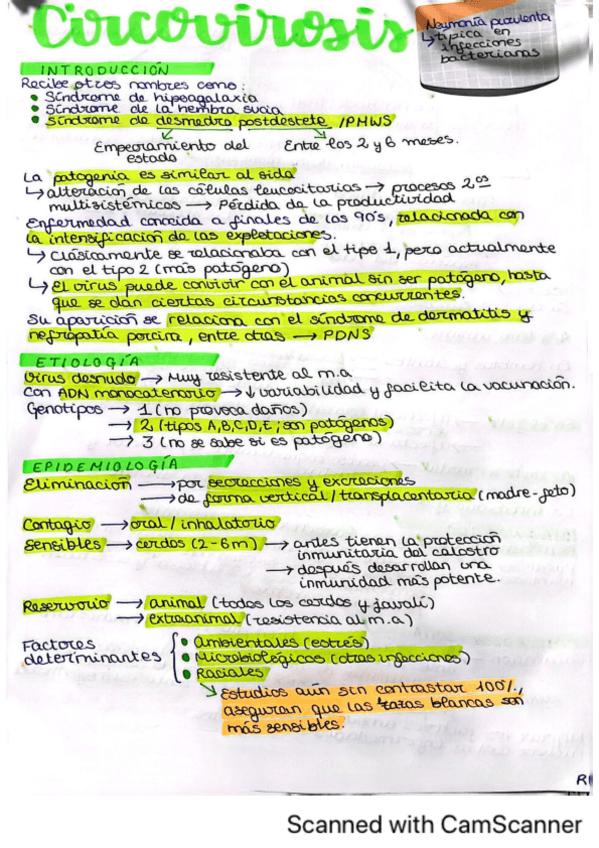 Circovirosis
Neumonía purulenta
↳ típica en
infecciones
bacterianas
INTRODUCCIÓN
Recibe otros nombres como:
• Síndrome de hipogalaxia
• Síndrome de la hembra sucia
• Síndrome de desmedro postdestete /PMWS
Empeoramiento del
estado
Entre los 2 y 6 meses.
La patogenia es similar al sida
↳ alteración de las células leucocitarias → procesos 2os
multisistémicos → Pérdida de la productividad
Enfermedad conocida a finales de los 90's, relacionada con
la intensificación de las explotaciones.
↳ Clásicamente se relacionaba con el tipo 1, pero actualmente
con el tipo 2 (más patógeno)
↳ El virus puede convivir con el animal sin ser patógeno, hasta
que se dan ciertas circunstancias concurrentes.
Su aparición se relaciona con el síndrome de dermatitis y
nefropatía porcina, entre otras → PDNS
ETIOLOGÍA
Virus desnudo → Muy resistente al m.a.
Con ADN monocatenario → ↓ variabilidad y facilita la vacunación.
Genotipos → 1 (no provoca daños)
→ 2 (tipos A,B,C,D,E; son patógenos)
→ 3 (no se sabe si es patógeno)
EPIDEMIOLOGÍA
Eliminación → por secrecciones y excreciones
→ de forma vertical / transplacentaria (madre-feto)
Contagio → oral / inhalatorio
Sensibles → cerdos (2-6m) → antes tienen la protección
inmunitaria del calostro
→ después desarrollan una
inmunidad más potente.
Reservorio → animal (todos los cerdos y javalí)
→ extraanimal (resistencia al m.a)
Factores
determinantes
• Ambientales (estrés)
• Microbiológicos (otras infecciones)
• Raciales
↳ Estudios aún sin contrastar 100%,
aseguran que las razas blancas son
más sensibles.
R
Scanned with CamScanner